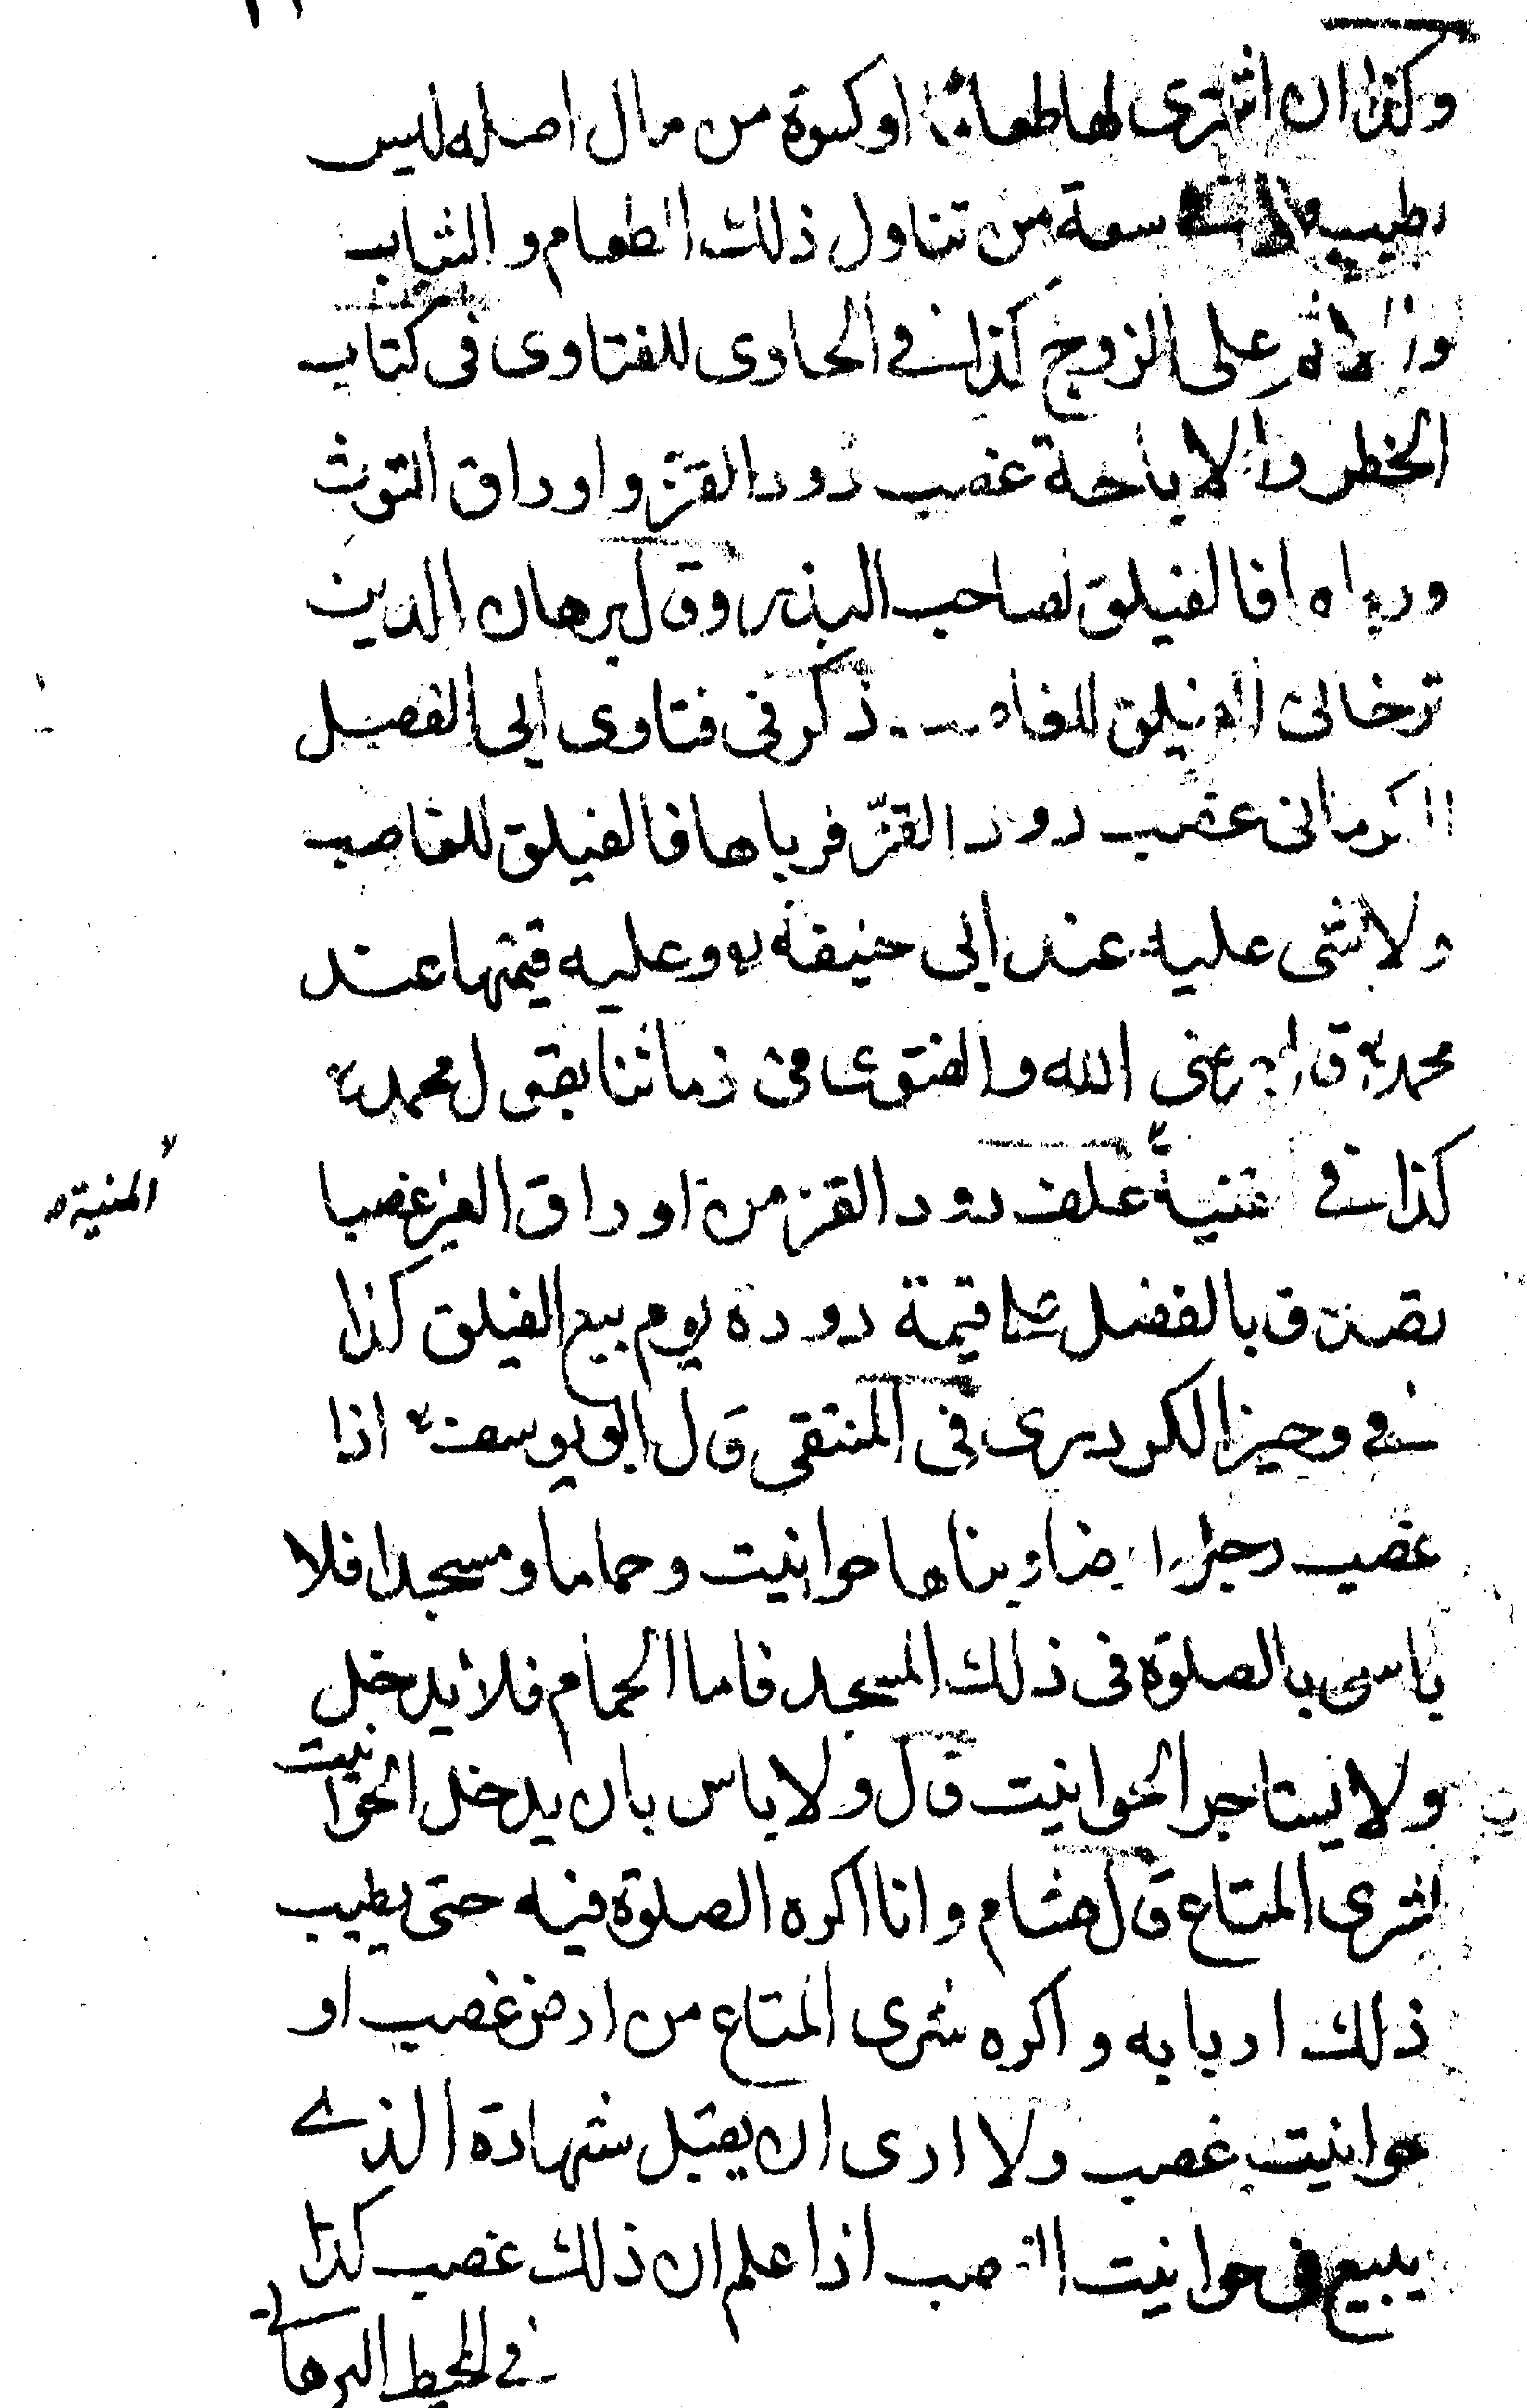 وكذا ان اشترى لها طعاما او كسوة من مال اصله ليس
بطيب فهي في سعة من تناول ذلك الطعام والثياب
والاثم على الزوج كذا في الحاوى للفتاوى في كتاب
الحظر والاباحة غصب دود القز واوراق التوث
ورباه فالفيلق لصاحب البذر وقال برهان الدين
ترخانى الفيلق للغاصب ذكر في فتاوى ابى الفضل
الكرمانى غصب دود القز فرباها فالفيلق للغاصب
ولا شى عليه عند ابى حنيفة رح وعليه قيمتها عند
محمد رح قال رضى الله والفتوى في زماننا بقول محمد رح
كذا في قنية علف دود القز من اوراق الغير غصبا
المنية
يصدق بالفضل على قيمة دوده يوم بيع الفيلق كذا
في وجيز الكردرى في المنتقى قال ابو يوسف رح اذا
غصب رجل ارضا وبناها حوانيت وحماما ومسجدا فلا
باس بالصلوة في ذلك المسجد فاما الحمام فلا يدخل
ولا يستاجر الحوانيت قال ولا باس بان يدخل الحوانيت
لشرى المتاع قال هشام وانا اكره الصلوة فيه حتى يطيب
ذلك اربابه واكره شرى المتاع من ارض غصب او
حوانيت غصب ولا ارى ان يقبل شهادة الذى
يبيع في حوانيت الغصب اذا علم ان ذلك غصب كذا
في المحيط البرهانى